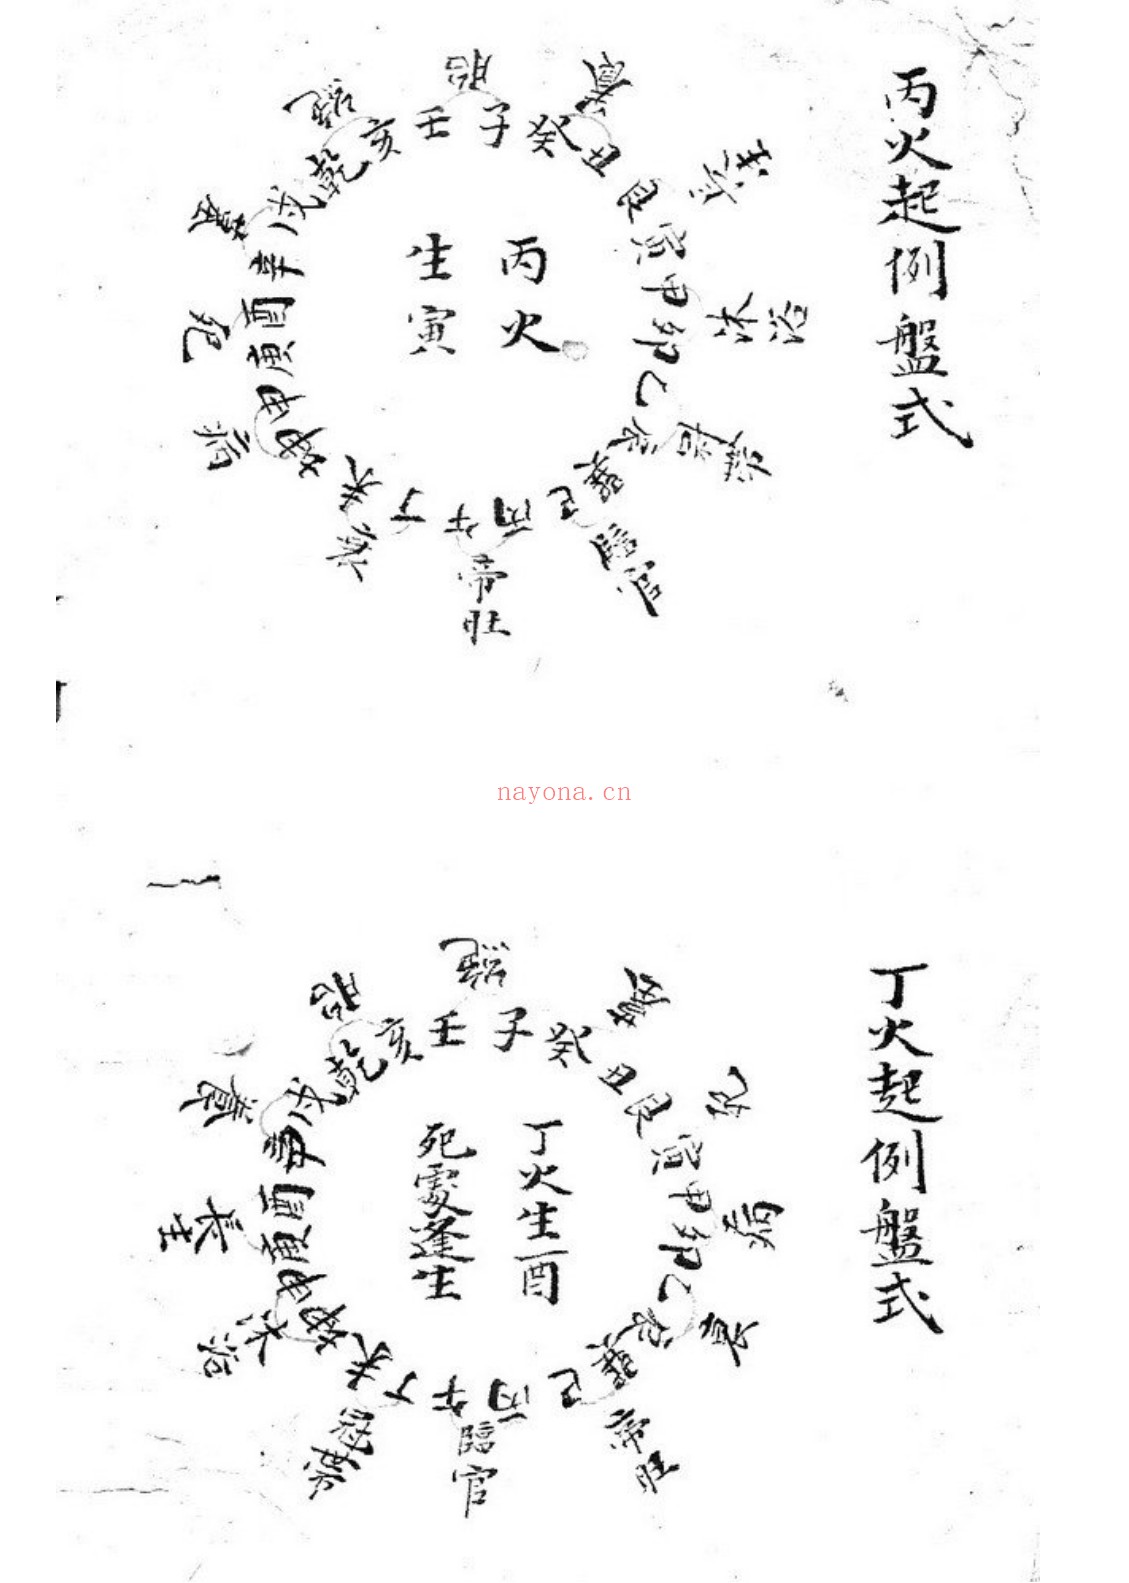 丙火起例盤式
丙火
生寅
壬子癸丑艮寅甲卯乙辰巽巳丙午丁未坤申庚酉辛戌乾亥
胎
養
長生
沐浴
冠帶
臨官
帝旺
衰
病
死
墓
絕
nayona.cn
丁火起例盤式
丁火生酉
死處逢生
壬子癸丑艮寅甲卯乙辰巽巳丙午丁未坤申庚酉辛戌乾亥
絕
墓
死
病
衰
帝旺
臨官
冠帶
沐浴
長生
養
胎